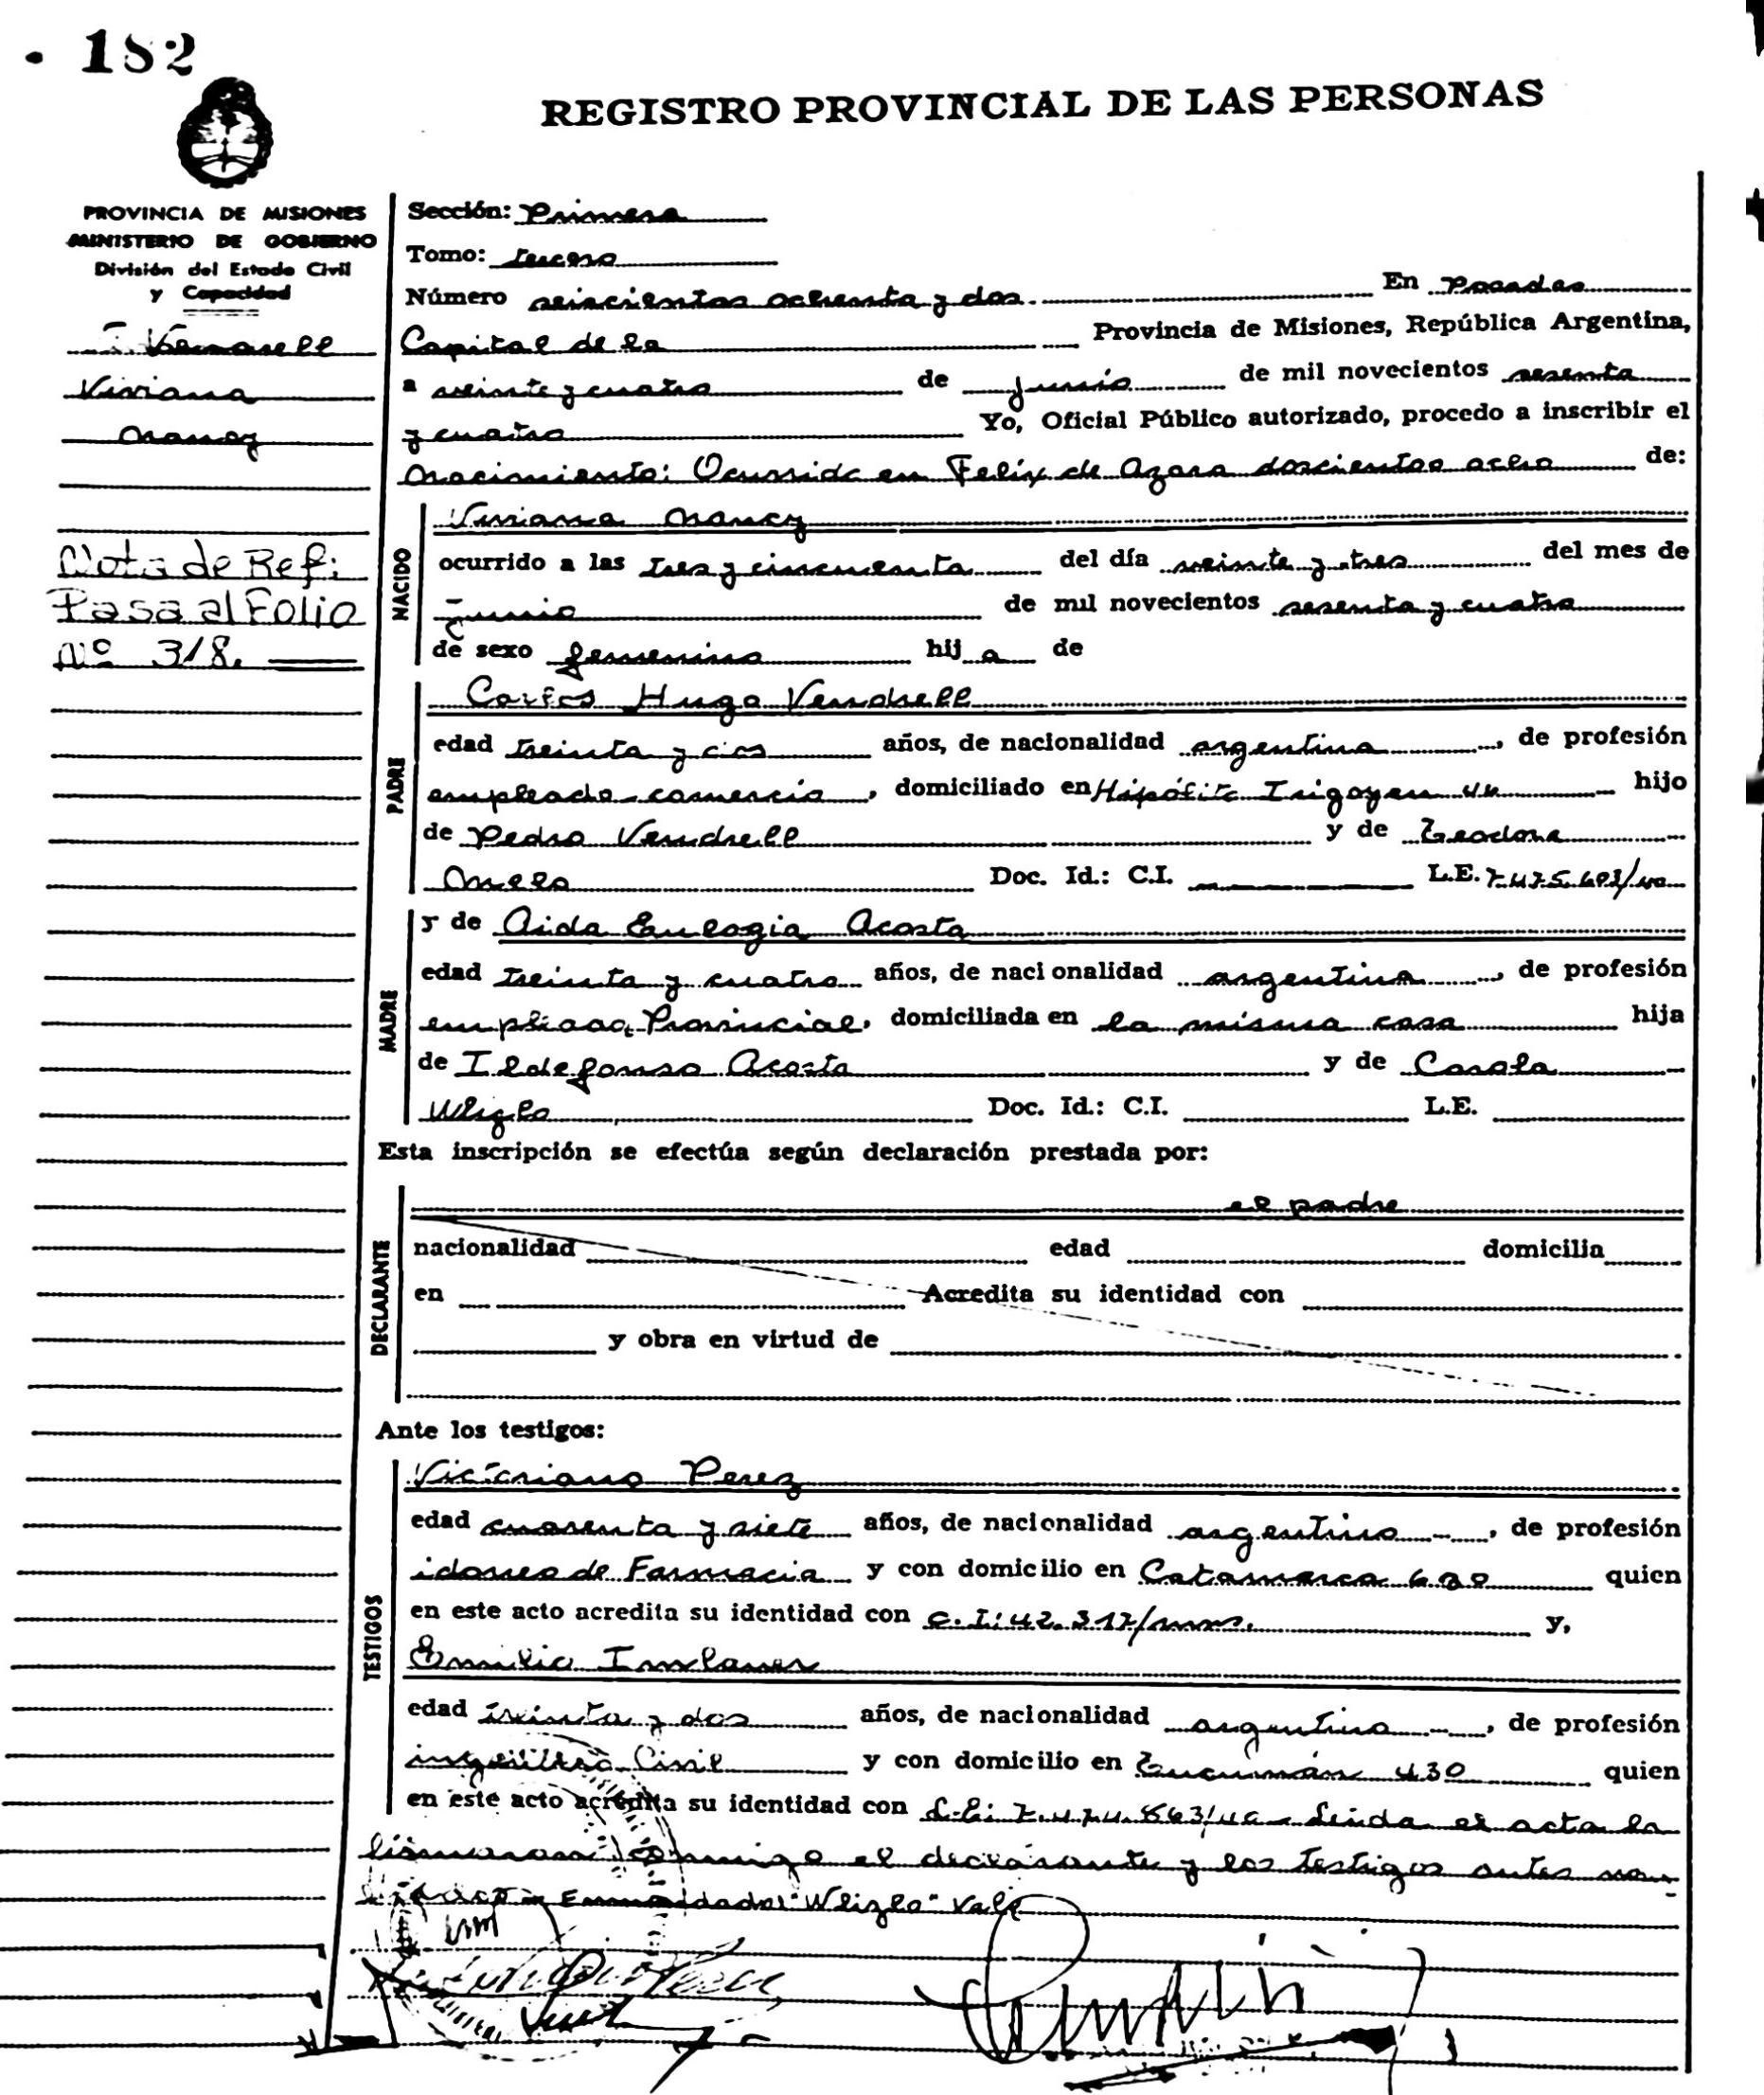 182
REGISTRO PROVINCIAL DE LAS PERSONAS
PROVINCIA DE MISIONES
MINISTERIO DE GOBIERNO
División del Estado Civil
y Capacidad
Viviana
Nancy
Nota de Ref:
Pasa al Folio
Nº 318.
Sección: Primera
Tomo: tercero
Número seiscientos ochenta y dos. En Posadas
Capital de la Provincia de Misiones, República Argentina,
a veinte y cuatro de junio de mil novecientos sesenta
y cuatro Yo, Oficial Público autorizado, procedo a inscribir el
nacimiento: Ocurrido en Felix de Azara doscientos ocho de:
NACIDO
Viviana Nancy
ocurrido a las tres y cincuenta del día veinte y tres del mes de
Junio de mil novecientos sesenta y cuatro
de sexo femenino hij a de
PADRE
Carlos Hugo Vendrell
edad treinta y dos años, de nacionalidad argentina, de profesión
empleado comercio, domiciliado en Hipólito Irigoyen 44 hijo
de Pedro Vendrell y de Teodora
Doc. Id.: C.I. L.E.
MADRE
y de Aida Eulogia Acosta
edad treinta y cuatro años, de nacionalidad argentina, de profesión
empleada Provincial, domiciliada en la misma casa hija
de Ildefonso Acosta y de Carola
Wlizlo Doc. Id.: C.I. L.E.
Esta inscripción se efectúa según declaración prestada por:
DECLARANTE
el padre
nacionalidad edad domicilia
en Acredita su identidad con
y obra en virtud de
Ante los testigos:
TESTIGOS
Victoriano Perez
edad cuarenta y siete años, de nacionalidad argentino, de profesión
idoneo de Farmacia y con domicilio en Catamarca quien
en este acto acredita su identidad con C.I: 42.317/mnes. y,
Emilio
edad treinta y dos años, de nacionalidad argentino, de profesión
ingeniero Civil y con domicilio en Tucumán 430 quien
en este acto acredita su identidad con Leida el acta la
firmaron conmigo el declarante y los testigos antes nom-
brados Enmendado: "Wlizlo" Vale